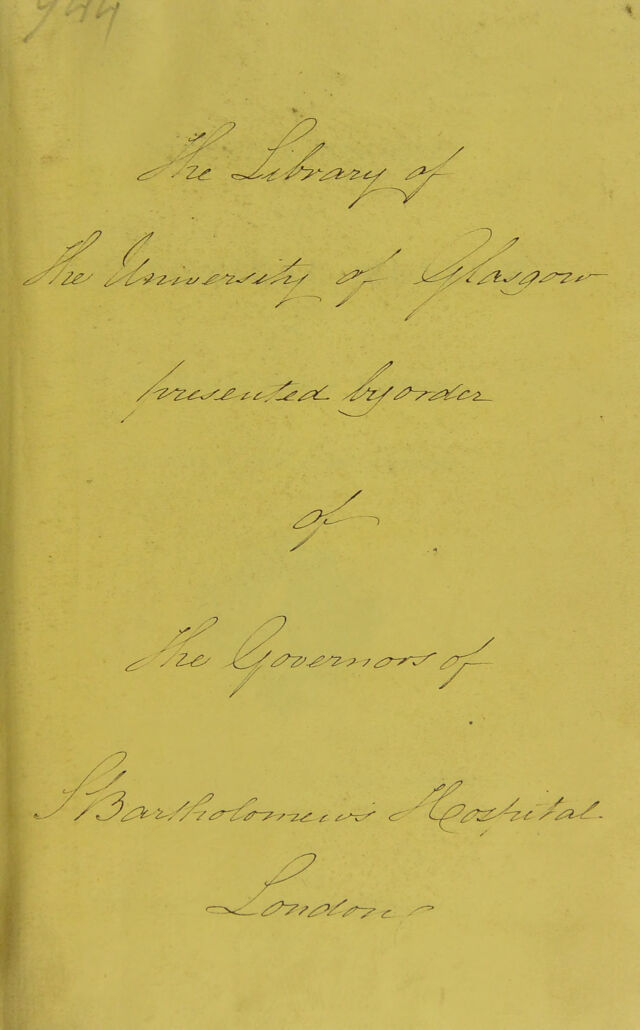 944
The Library of
the University of Glasgow
presented by order
of
The Governors of
S Bartholomew's Hospital
London